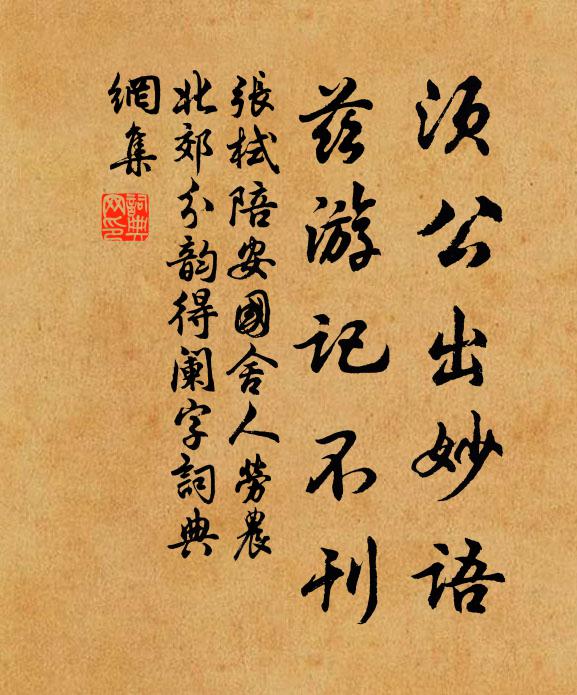 须公出妙語
兹游記不刊
張栻陪安國舍人勞農
北郊分韵得阑字詞典
網集
詞典
网印